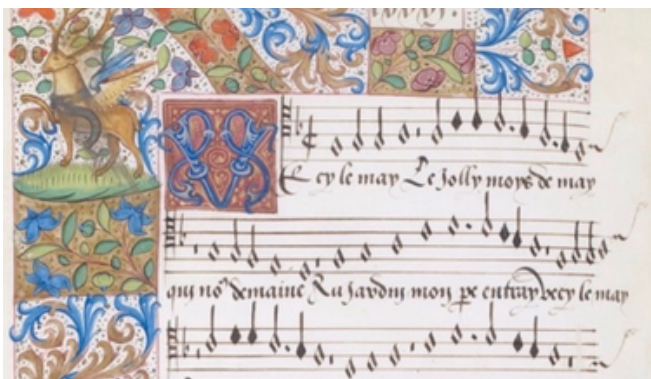 Vecy le may Le Jolly moys de may
qui no9 demaine Au Jardin mon pe entray Vecy le may